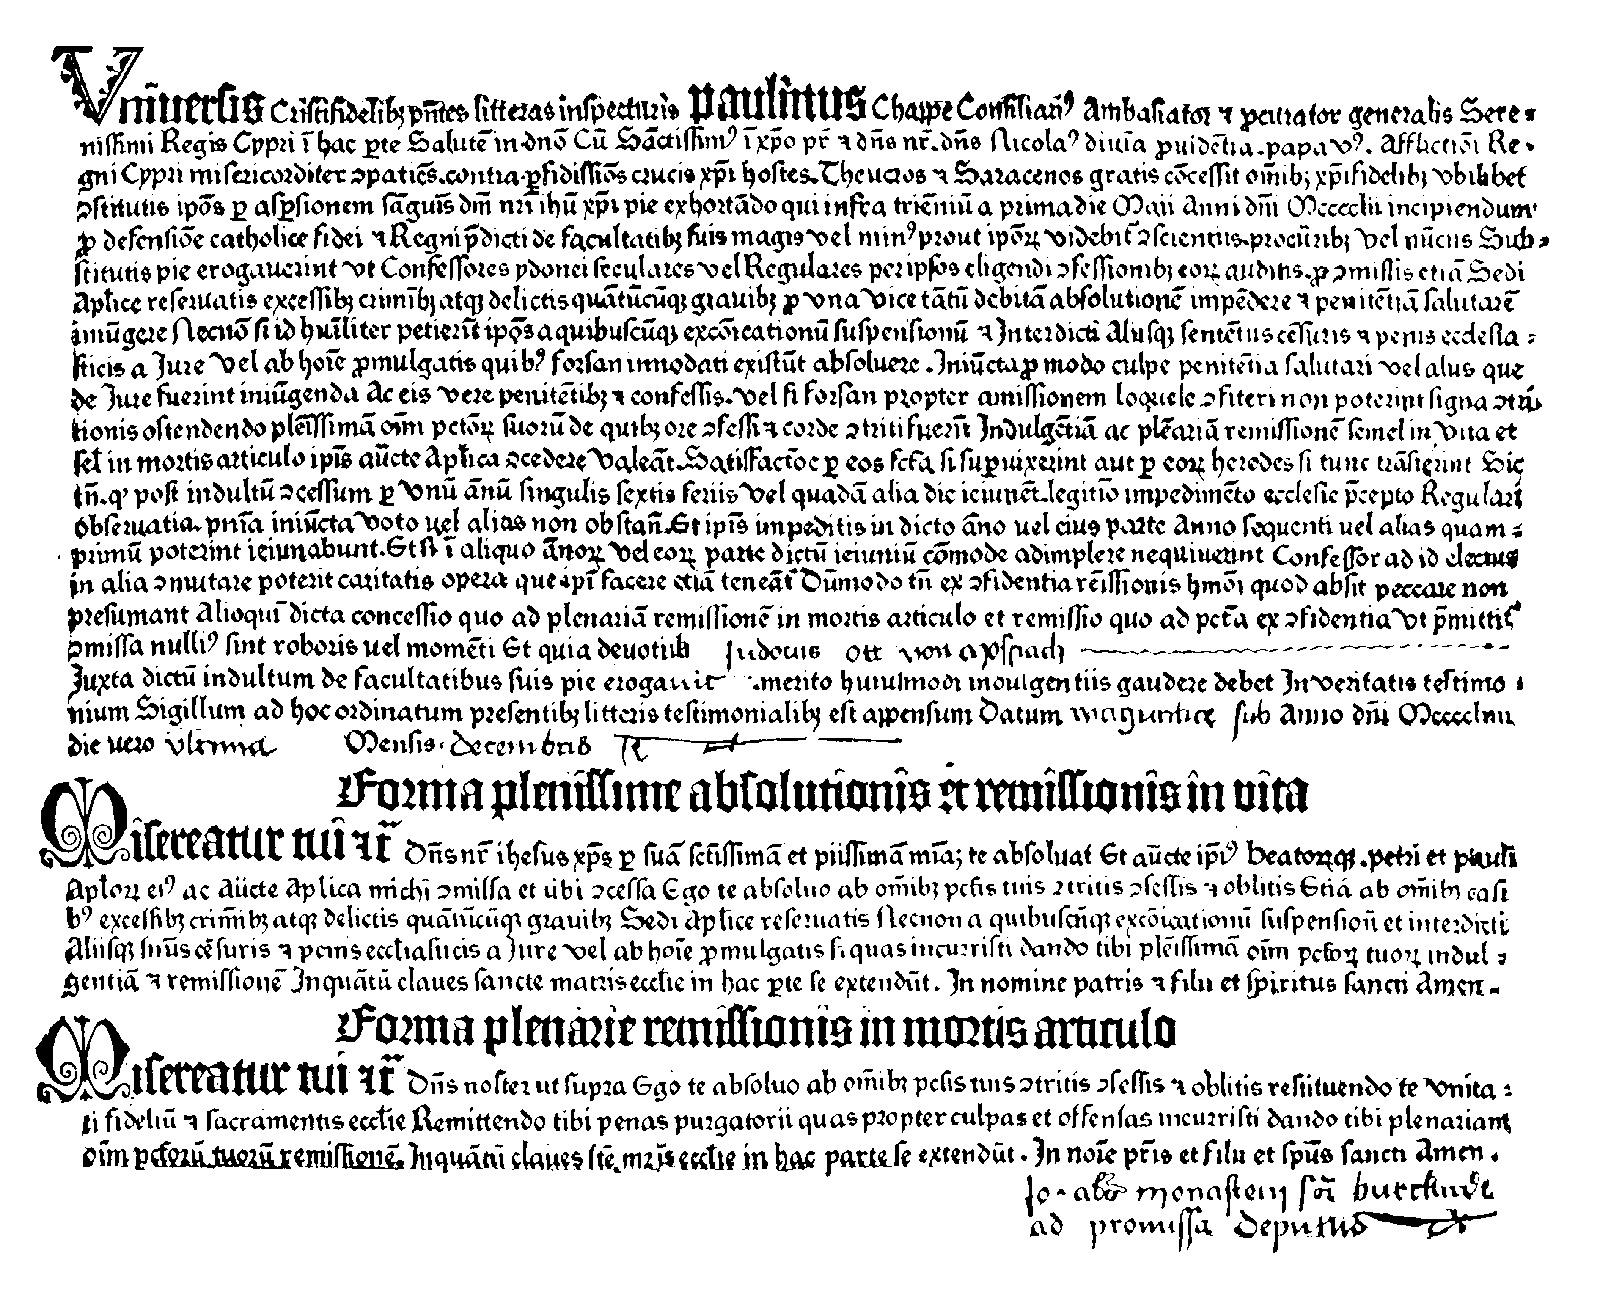 Vniuersis Cristifidelibꝫ pñtes litteras inspecturis Paulinus Chappe Consiliariꝰ Ambasiator ⁊ ꝓcurator generalis Sere⸗
nissimi Regis Cypri ī hac ꝑte Salutē in dnō Cū Sāctissimꝰ ī xp̄o pr̄ ⁊ dn̄s nr̄. dn̄s Nicolaꝰ diuīa ꝓuidētia. papa vꝰ. Afflictiōi Re⸗
gni Cypri misericorditer ↄpatiēs. contra ꝑfidissiōs crucis xp̄i hostes. Theucros ⁊ Saracenos gratis cōcessit om̄ibꝫ xp̄ifidelibꝫ vbilibet
ↄstitutis ip̄os ꝑ asꝑsionem sāguīs dn̄i nr̄i ihū xp̄i pie exhortādo qui infra trieniū a prima die Maii Anni dn̄i Mcccclii incipiendum
ꝓ defensiōe catholice fidei ⁊ Regni p̄dicti de facultatibꝫ suis magis vel minꝰ prout ip̄oꝝ videbit̄ ↄscientiis. procurībꝫ vel nūciis Sub⸗
stitutis pie erogauerint vt Confessores ydonei seculares vel Regulares per ipsos eligendi ↄfessionibꝫ eoꝝ auditis. ꝓ ↄmissis etiā Sedi
Apl̄ice reseruatis excessibꝫ criminībꝫ atqꝫ delictis quātūcūqꝫ grauibꝫ ꝓ vna vice tātū debitā absolutionē impēdere ⁊ penitētiā salutarē
iniūgere Necnō si id hūiliter petierūt ip̄os a quibuscūqꝫ excōicationū suspensionū ⁊ Interdicti Aliisqꝫ sentētiis cēsuris ⁊ penis ecclesia⸗
sticis a Jure vel ab hoīe ꝓmulgatis quibꝰ forsan innodati existūt absoluere. Iniūcta ꝓ modo culpe penitētia salutari vel aliis que
de Jure fuerint iniūgenda Ac eis vere penitētibꝫ ⁊ confessis. vel si forsan propter amissionem loquele ↄfiteri non poterint signa ↄtri⸗
tionis ostendendo plēissimā oīm pctōꝝ suorū de quibꝫ ore ↄfessi ⁊ corde ↄtriti fuerīt Indulgētiā ac plēariā remissionē semel in vita et
sel̄ in mortis articulo ip̄is aūcte Apl̄ica ↄcedere valeāt. Satisfactōe ꝑ eos fcā si suꝑuixerint aut ꝑ eoꝝ heredes si tunc trāsierint Sic
tn̄. qꝰ post indultū ↄcessum ꝑ vnū ānū singulis sextis feriis vel quadā alia die ieiunēt. legitīo impedimēto ecclesie p̄cepto Regulari
obseruātia. pn̄ia iniūcta voto vel alias non obstan̄. Et ip̄is impeditis in dicto āno vel eius parte Anno sequenti vel alias quam⸗
primū poterint ieiunabunt. Et si ī aliquo ānoꝝ vel eoꝝ parte dictū ieiuniū cōmode adimplere nequiuerint Confessor ad id electus
in alia ↄmutare poterit caritatis opera que ip̄i facere etiā teneāt̄ Dūmodo tn̄ ex ↄfidentia rēissionis hmōi quod absit peccare non
presumant Alioqui dicta concessio quo ad plenariā remissionē in mortis articulo et remissio quo ad pctā ex ↄfidentia vt p̄mittit̄
ↄmissa nulliꝰ sint roboris vel momēti Et quia deuoti Judocus Ott von Apspach
Juxta dictū indultum de facultatibus suis pie erogauit merito huiusmodi indulgentiis gaudere debet In veritatis testimo⸗
nium Sigillum ad hoc ordinatum presentibꝫ litteris testimonialibꝫ est appensum Datum maguntie sub Anno dn̄i Mccccliiii
die vero vltima Mensis decembris
Forma plenissime absolutionis et remissionis in vita
Misereatur tui ⁊cͣ Dn̄s nr̄ ihesus xp̄s ꝑ suā sctīssimā et piissimā mīaꝫ te absoluat Et aūcte ip̄iꝰ beatoꝝqꝫ. petri et pauli
Apl̄oꝝ eiꝰ ac aūcte Apl̄ica michi ↄmissa et tibi ↄcessa Ego te absoluo ab om̄ibꝫ pctīs tuis ↄtritis ↄfessis ⁊ oblitis Etiā ab om̄ibꝫ casi
bꝰ excessibꝫ crimībꝫ atqꝫ delictis quātūcūqꝫ grauibꝫ Sedi Apl̄ice reseruatis Necnon a quibuscūqꝫ excōicationū suspension̄ et interdicti
Aliisqꝫ sniis cēsuris ⁊ penis eccl̄iasticis a Jure vel ab hoīe ꝓmulgatis si quas incurristi dando tibi plēissimā oīm pctōꝝ tuoꝝ indul⸗
gentiā ⁊ remissionē Inquātū claues sancte matris eccl̄ie in hac ꝑte se extendūt. In nomine patris ⁊ filii et spiritus sancti Amen.
Forma plenarie remissionis in mortis articulo
Misereatur tui ⁊cͣ Dn̄s noster vt supra Ego te absoluo ab om̄ibꝫ pctīs tuis ↄtritis ↄfessis ⁊ oblitis restituendo te vnita⸗
ti fideliū ⁊ sacramentis eccl̄ie Remittendo tibi penas purgatorii quas propter culpas et offensas incurristi dando tibi plenariam
oīm pctōrū tuorū remissionē. Inquātū claues stē mr̄is eccl̄ie in hac parte se extendūt. In noīe pr̄is et filii et sp̄us sancti Amen.
Jo. abbas monasterii scī burckardi
ad premissa deputatus